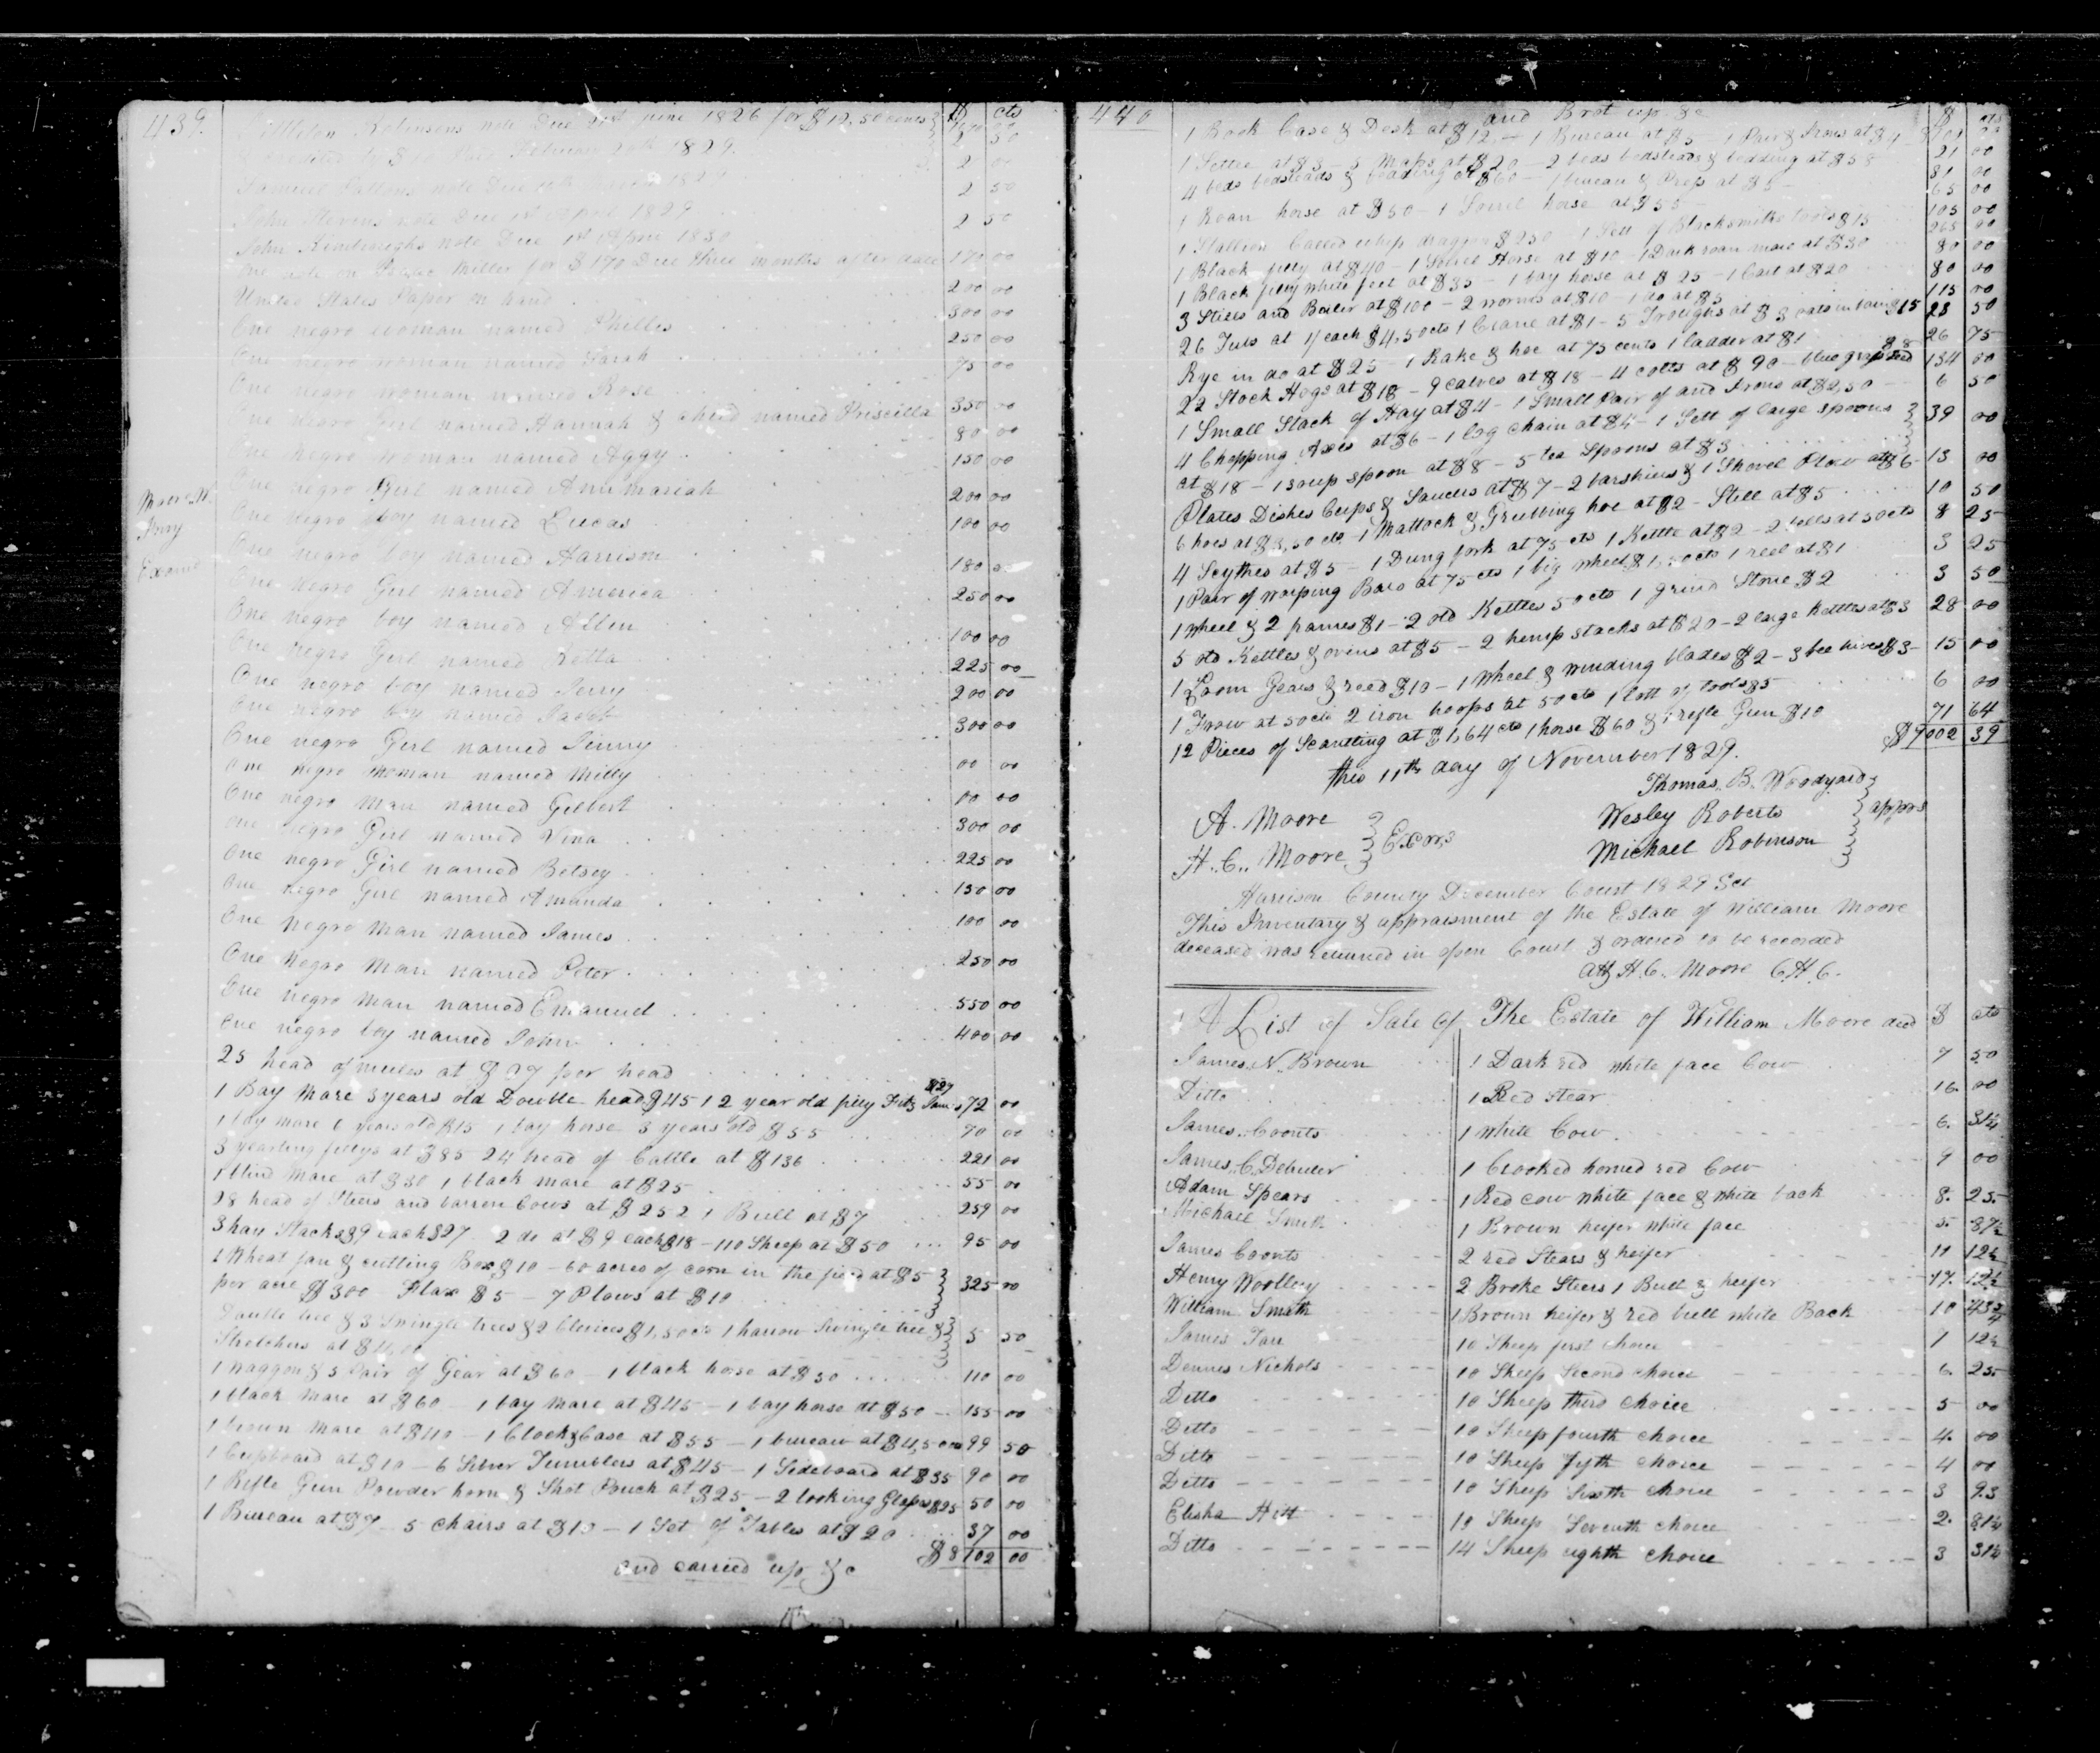 439.
$ cts
Robinsons note Due 21st June 1826 for $12,50 cents
credited by $ February 20th 1829.
2 00
Samuel Pattons note Due 1829
2 50
John Stevens note Due 1st April 1829
2 50
John Kimbroughs note Due 1st April 1830
One note on Isaac Miller for $170 Due three months after date 170 00
United States Paper on hand 200 00
One negro woman named Phillis 300 00
One negro woman named Sarah 250 00
One negro woman named Rose 75 00
One negro Girl named Hannah & child named Priscilla 350 00
One negro woman named Aggy 80 00
One negro Girl named Annmariah 150 00
Moore W.
Invy
Examd
One negro boy named Lucas 200 00
One negro boy named Harrison 100 00
One negro Girl named America 180 00
One negro boy named Allen 250 00
One negro Girl named Retta 100 00
One negro boy named Jerry 225 00
One negro boy named Jacob 200 00
One negro Girl named Jinny 300 00
One negro woman named Milly 00 00
One negro man named Gilbert 00 00
One negro Girl named Vina 300 00
One negro Girl named Betsey 225 00
One negro Girl named Amanda 150 00
One negro man named James 100 00
One negro man named Peter 250 00
One negro man named Emanuel 550 00
One negro boy named John 400 00
25 head of mules at $27 per head
1 Bay mare 3 years old Double head $45 1 2 year old filly $27 72 00
1 bay mare 6 years old $15 1 bay horse 3 years old $55 70 00
3 yearling fillys at $85 24 head of Cattle at $136 221 00
1 blind mare at $30 1 black mare at $25 55 00
28 head of Steers and barren Cows at $252 1 Bull at $7 259 00
3 hay Stacks $9 each $27 2 do at $9 each $18 - 110 Sheep at $50 95 00
1 Wheat fan & cutting Box $10 - 60 acres of corn in the field at $5
per acre $300 Flax $5 - 7 Plows at $10 325 00
Double tree & 3 Swingle trees $2 Clevices $1,50cts 1 harrow Swingle tree &
Stretchers at $ 5 50
1 waggon & 5 Pair of Gear at $60 - 1 black horse at $50 110 00
1 black mare at $60 - 1 bay mare at $45 - 1 bay horse at $50 155 00
1 brown mare at $40 - 1 Clock & Case at $55 - 1 bureau at $4,50cts 99 50
1 Cupboard at $10 - 6 Silver Tumblers at $45 - 1 Sideboard at $35 90 00
1 Rifle Gun Powder horn & Shot Pouch at $25 - 2 looking Glasses $25 50 00
1 Bureau at $7 - 5 chairs at $10 - 1 Set of Tables at $20 37 00
$8102 00
and carried up &c
440
and Brot up &c
$ cts
1 Book Case & Desk at $12 - 1 Bureau at $5 - 1 Pair & Irons at $4 21 00
1 Settee at $3 - 3 Maps at $20 - 2 beds bedsteads & bedding at $58 81 00
4 beds bedsteads & bedding at $60 - 1 bureau & Press at $5 - 65 00
1 Roan horse at $50 - 1 Sorrel horse at $55 - 105 00
1 Stallion Called whip dragon $250 1 Sett of Blacksmiths tools $15 265 00
1 Black filly at $40 - 1 Sorrel Horse at $10 - 1 Dark roan mare at $30 80 00
1 Black filly white feet at $35 - 1 bay horse at $25 - 1 Cart at $20 80 00
3 Stills and Boiler at $100 - 2 worms at $10 - 1 do at $5 115 00
26 Tubs at 1/ each $4,50cts 1 Crane at $1 - 5 Troughs at $3 oats in barn $15 23 50
Rye in do at $25 - 1 Rake & hoe at 75 cents 1 ladder at $1 26 75
22 Stock Hogs at $18 - 9 calves at $18 - 4 colts at $90 - blue grass seed $8 134 00
1 Small Stack of Hay at $4 - 1 Small Pair of and Irons at $2,50 6 50
4 Chopping Axes at $6 - 1 log chain at $4 - 1 Sett of large spoons
at $18 - 1 soup spoon at $8 - 5 tea Spoons at $3 39 00
Plates Dishes Cups & Saucers at $7 - 2 barshires & 1 Shovel Plow at $6 13 00
6 hoes at $3,50 cts 1 Mattock & Grubbing hoe at $2 - Still at $5 10 50
4 Scythes at $5 - 1 Dung fork at 75 cts 1 Kettle at $2 - 2 bells at 50cts 8 25
1 Pair of warping Bars at 75 cts 1 big wheel $1,50cts 1 reel at $1 3 25
1 wheel & 2 frames $1 - 2 old Kettles 50 cts 1 grind Stone $2 3 50
5 old Kettles & ovens at $5 - 2 hemp stacks at $20 - 2 large kettles at $3 28 00
1 Loom Gears & reed $10 - 1 Wheel & winding blades $2 - 3 bee hives $3 - 15 00
1 Frow at 50cts 2 iron hoops at 50cts 1 lott of tools $5 6 00
12 Pieces of Scantling at $1,64cts 1 horse $60 & 1 rifle Gun $10 71 64
$9002 39
this 11th day of November 1829.
Thomas B. Woodyard
A. Moore
H. C. Moore } Excors
Wesley Roberts } apprs
Michael Robinson
Harrison County December Court 1829 Sct
This Inventary & appraisment of the Estate of William Moore
deceased was returned in open Court & ordered to be recorded
Att H. C. Moore C.H.C.
A List of Sale of The Estate of William Moore decd $ cts
James N. Brown 1 Dark red white face Cow 7 50
Ditto 1 Red Stear 16. 00
James Coonts 1 white Cow 6. 31¼
James C. 1 Crooked horned red Cow 9 00
Adam Spears 1 Red cow white face & white back 8. 25
Michael Smith 1 Brown heifer white face 5. 87½
James Coonts 2 red Stears & heifer 11 12½
Henry Woolley 2 Broke Steers 1 Bull & heifer 17. 12½
William Smith 1 Brown heifer & red bull white Back 10 43¾
James Tarr 10 Sheep first choice 1 12½
Dennes Nichols 10 Sheep Second choice 6. 25
Ditto 10 Sheep third choice 5 00
Ditto 10 Sheep fourth choice 4. 00
Ditto 10 Sheep fifth choice 4 00
Ditto 10 Sheep Sixth choice 3 93
Elisha Hitt 19 Sheep Seventh choice 2. 81¼
Ditto 14 Sheep eighth choice 3 31¼